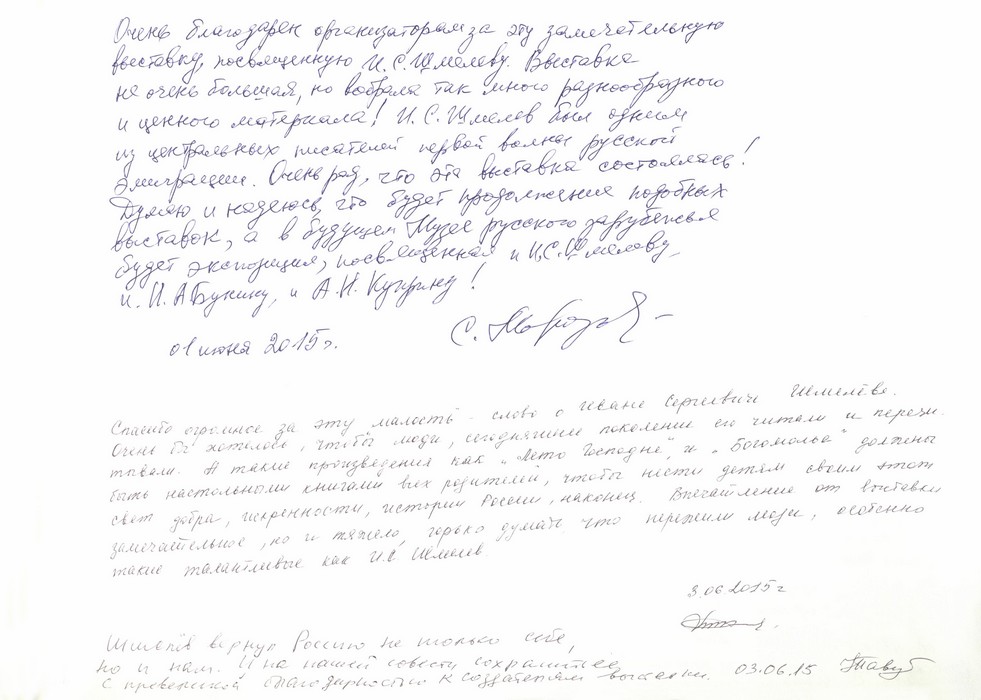 Очень благодарен организаторам за эту замечательную
выставку, посвященную И.С. Шмелеву. Выставка
не очень большая, но вобрала так много разнообразного
и ценного материала! И.С. Шмелев был одним
из центральных писателей первой волны русской
эмиграции. Очень рад, что эта выставка состоялась!
Думаю и надеюсь, что будет продолжение подобных
выставок, а в будущем Музее русского зарубежья
будет экспозиция, посвященная и И.С. Шмелеву,
и И.А Бунину, и А.И. Куприну!
01 июня 2015г.
Спасибо огромное за эту малость - слово о Иване Сергеевиче Шмелёве.
Очень бы хотелось, чтобы люди, сегодняшнее поколение его читали и перечи-
тывали. А такие произведения как „Лето Господне", и „Богомолье" должны
быть настольными книгами всех родителей, чтобы нести детям своим этот
свет добра, искренности, истории России, наконец. Впечатление от выставки
замечательное, но и тяжело, горько думать что пережили люди, особенно
такие талантливые как И.С. Шмелев
3.06.2015г
Шмелёв вернул Россию не только себе,
но и нам. И на нашей совести сохранить её
С благодарностью к создателям выставки. 03.06.15